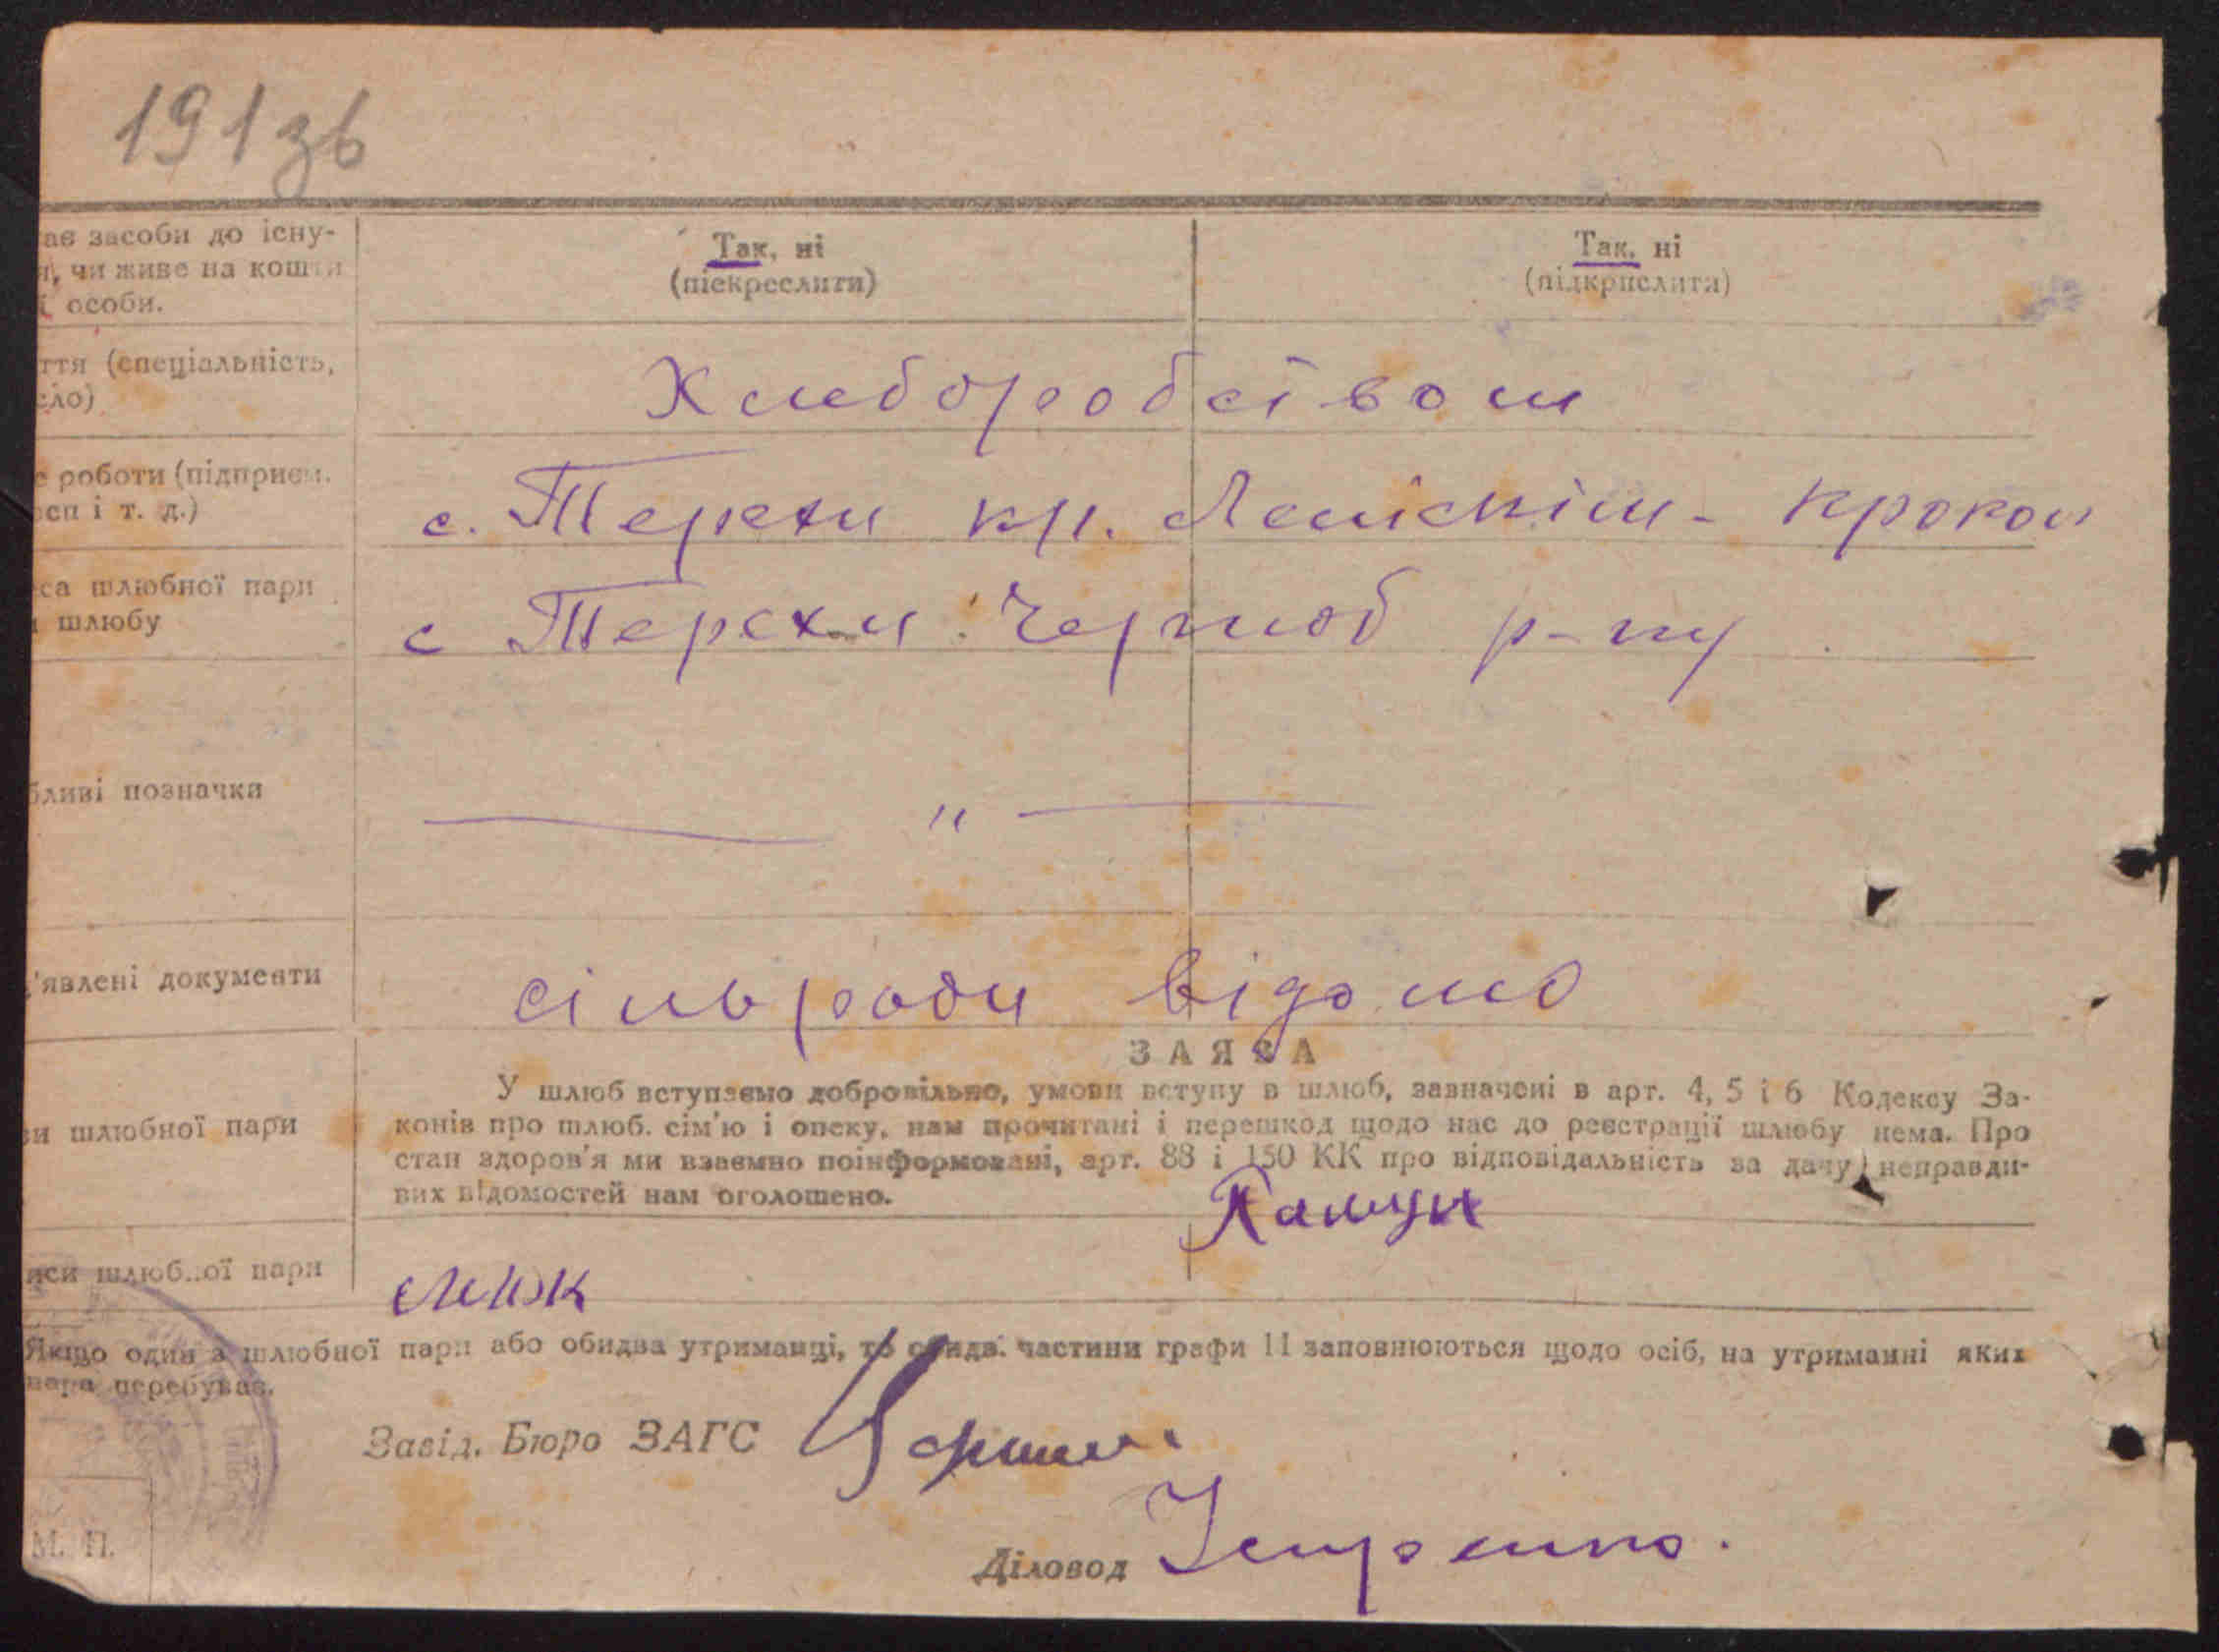 191 зв
ає засоби до існу-
я, чи живе на кошти
ї особи.
Так, ні
(піскреслити)
Так, ні
(підкрислити)
ття (спеціальність,
сло)
Хлеборобством
с роботи (підприєм.
осп і т. д.)
с. Терехи кл. Леніскім - кроком
са шлюбної пари
шлюбу
с Терехи Чорноб р-ну
бливі позначки
— " —
'явлені документи
сільради відомо
ЗАЯВА
и шлюбної пари
У шлюб вступаємо добровільно, умови вступу в шлюб, зазначені в арт. 4, 5 і 6 Кодексу За-
конів про шлюб. сім'ю і опеку, нам прочитані і перешкод щодо нас до реєстрації шлюбу нема. Про
стан здоров'я ми взаємно поінформовані, арт. 88 і 150 КК про відповідальність за дачу неправди-
вих відомостей нам оголошено.
иси шлюбної пари
Якщо один з шлюбної пари або обидва утриманці, то обидв. частини графи 11 заповнюються щодо осіб, на утриманні яких
пара перебуває.
Завід. Бюро ЗАГС
Діловод
М. П.